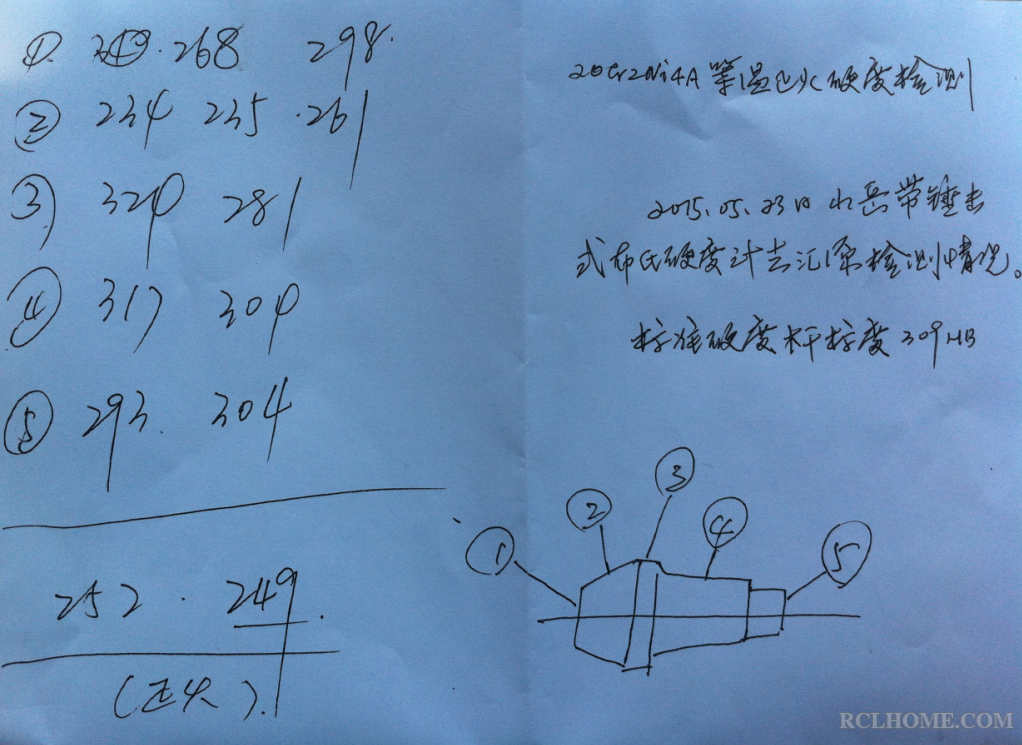 ① 349. 268 298.
② 234 235 .261
③ 320 281
④ 317 304
⑤ 293. 304
252 . 249.
(正火).
20Cr2Ni4A 等温退火硬度检测
2015.05.23日 小岳带锤击
式布氏硬度计去汇原检测情况。
标准硬度杆标度 309HB
① ② ③ ④ ⑤
RCLHOME.COM